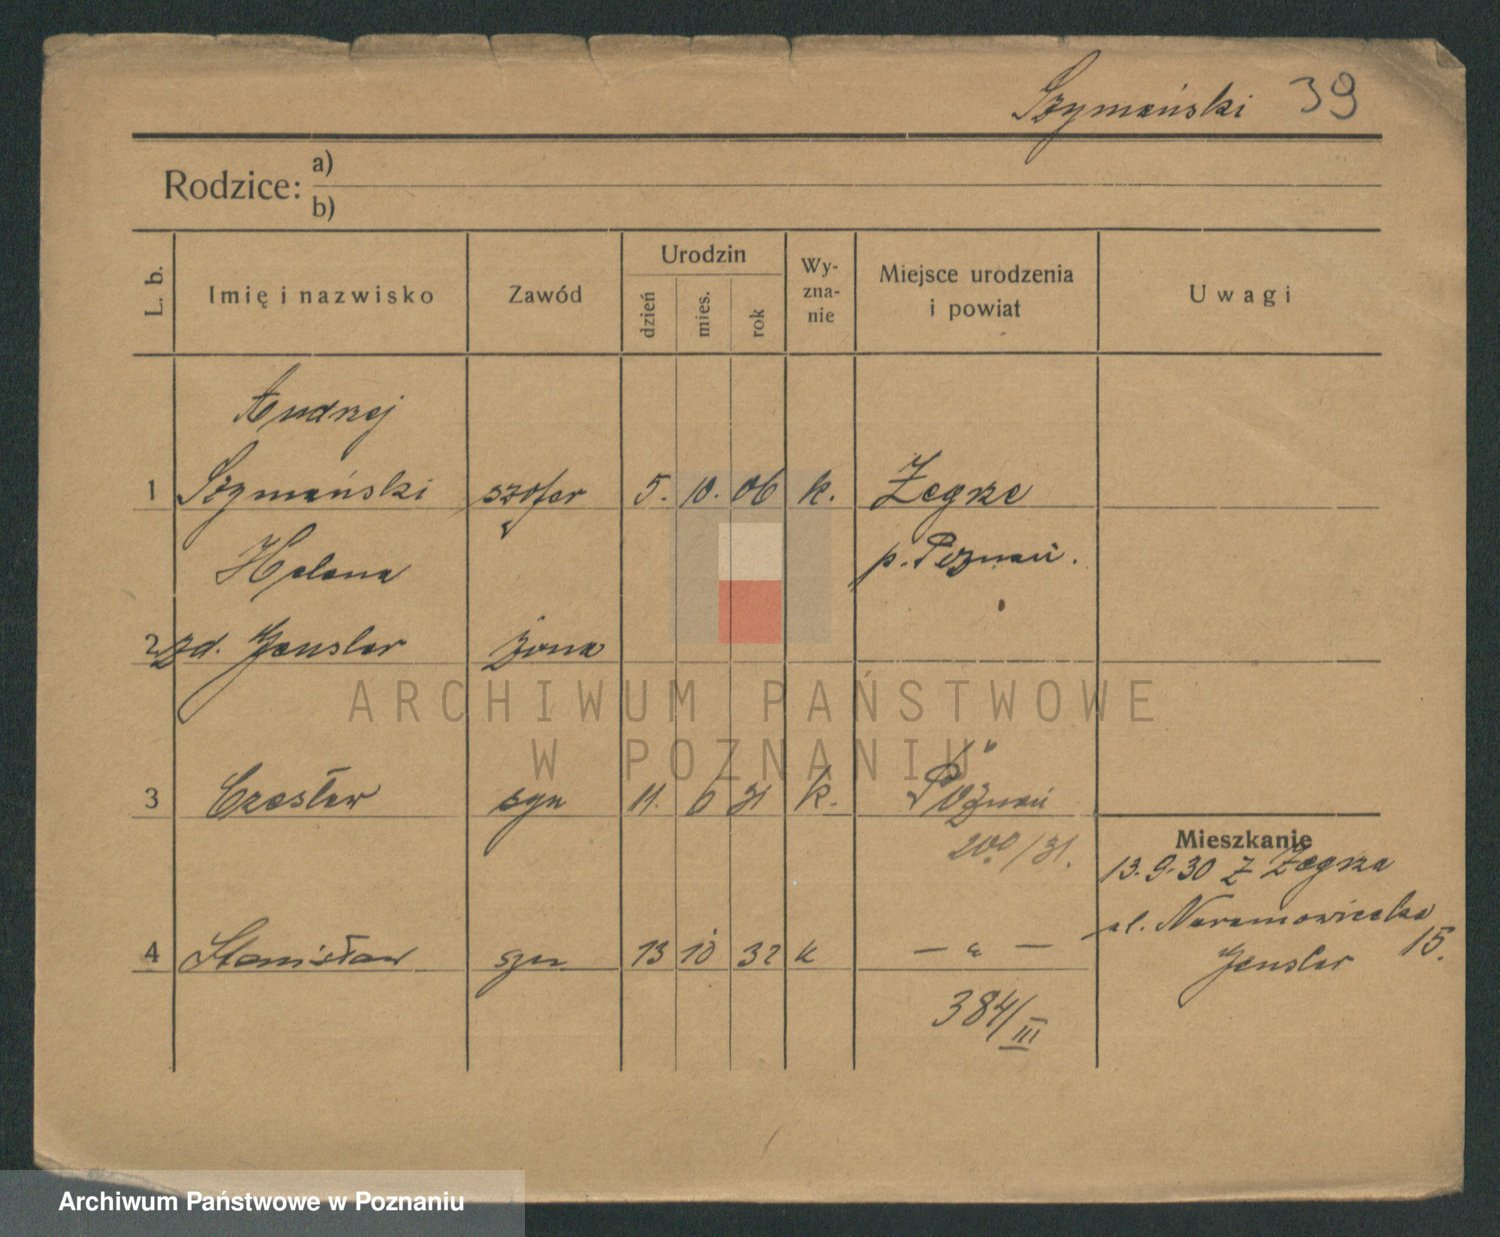 Szymański 39
Rodzice: a)
b)
L. b.
Imię i nazwisko
Zawód
Urodzin
dzień
mies.
rok
Wy-
zna-
nie
Miejsce urodzenia
i powiat
Uwagi
Andrzej
1 Szymański szofer 5. 10. 06 k. Żegrze
Helena p. Poznań.
2 zd. Jensler żona
ARCHIWUM PAŃSTWOWE
W POZNANIU
3 Czesław syn 11. 6 31 k. Poznań
Mieszkanie
13.9.30 z Żegrza
ul. Naramowicka
15.
4 Stanisław syn 13 10 32 k — " —
Jensler
384/III
Archiwum Państwowe w Poznaniu